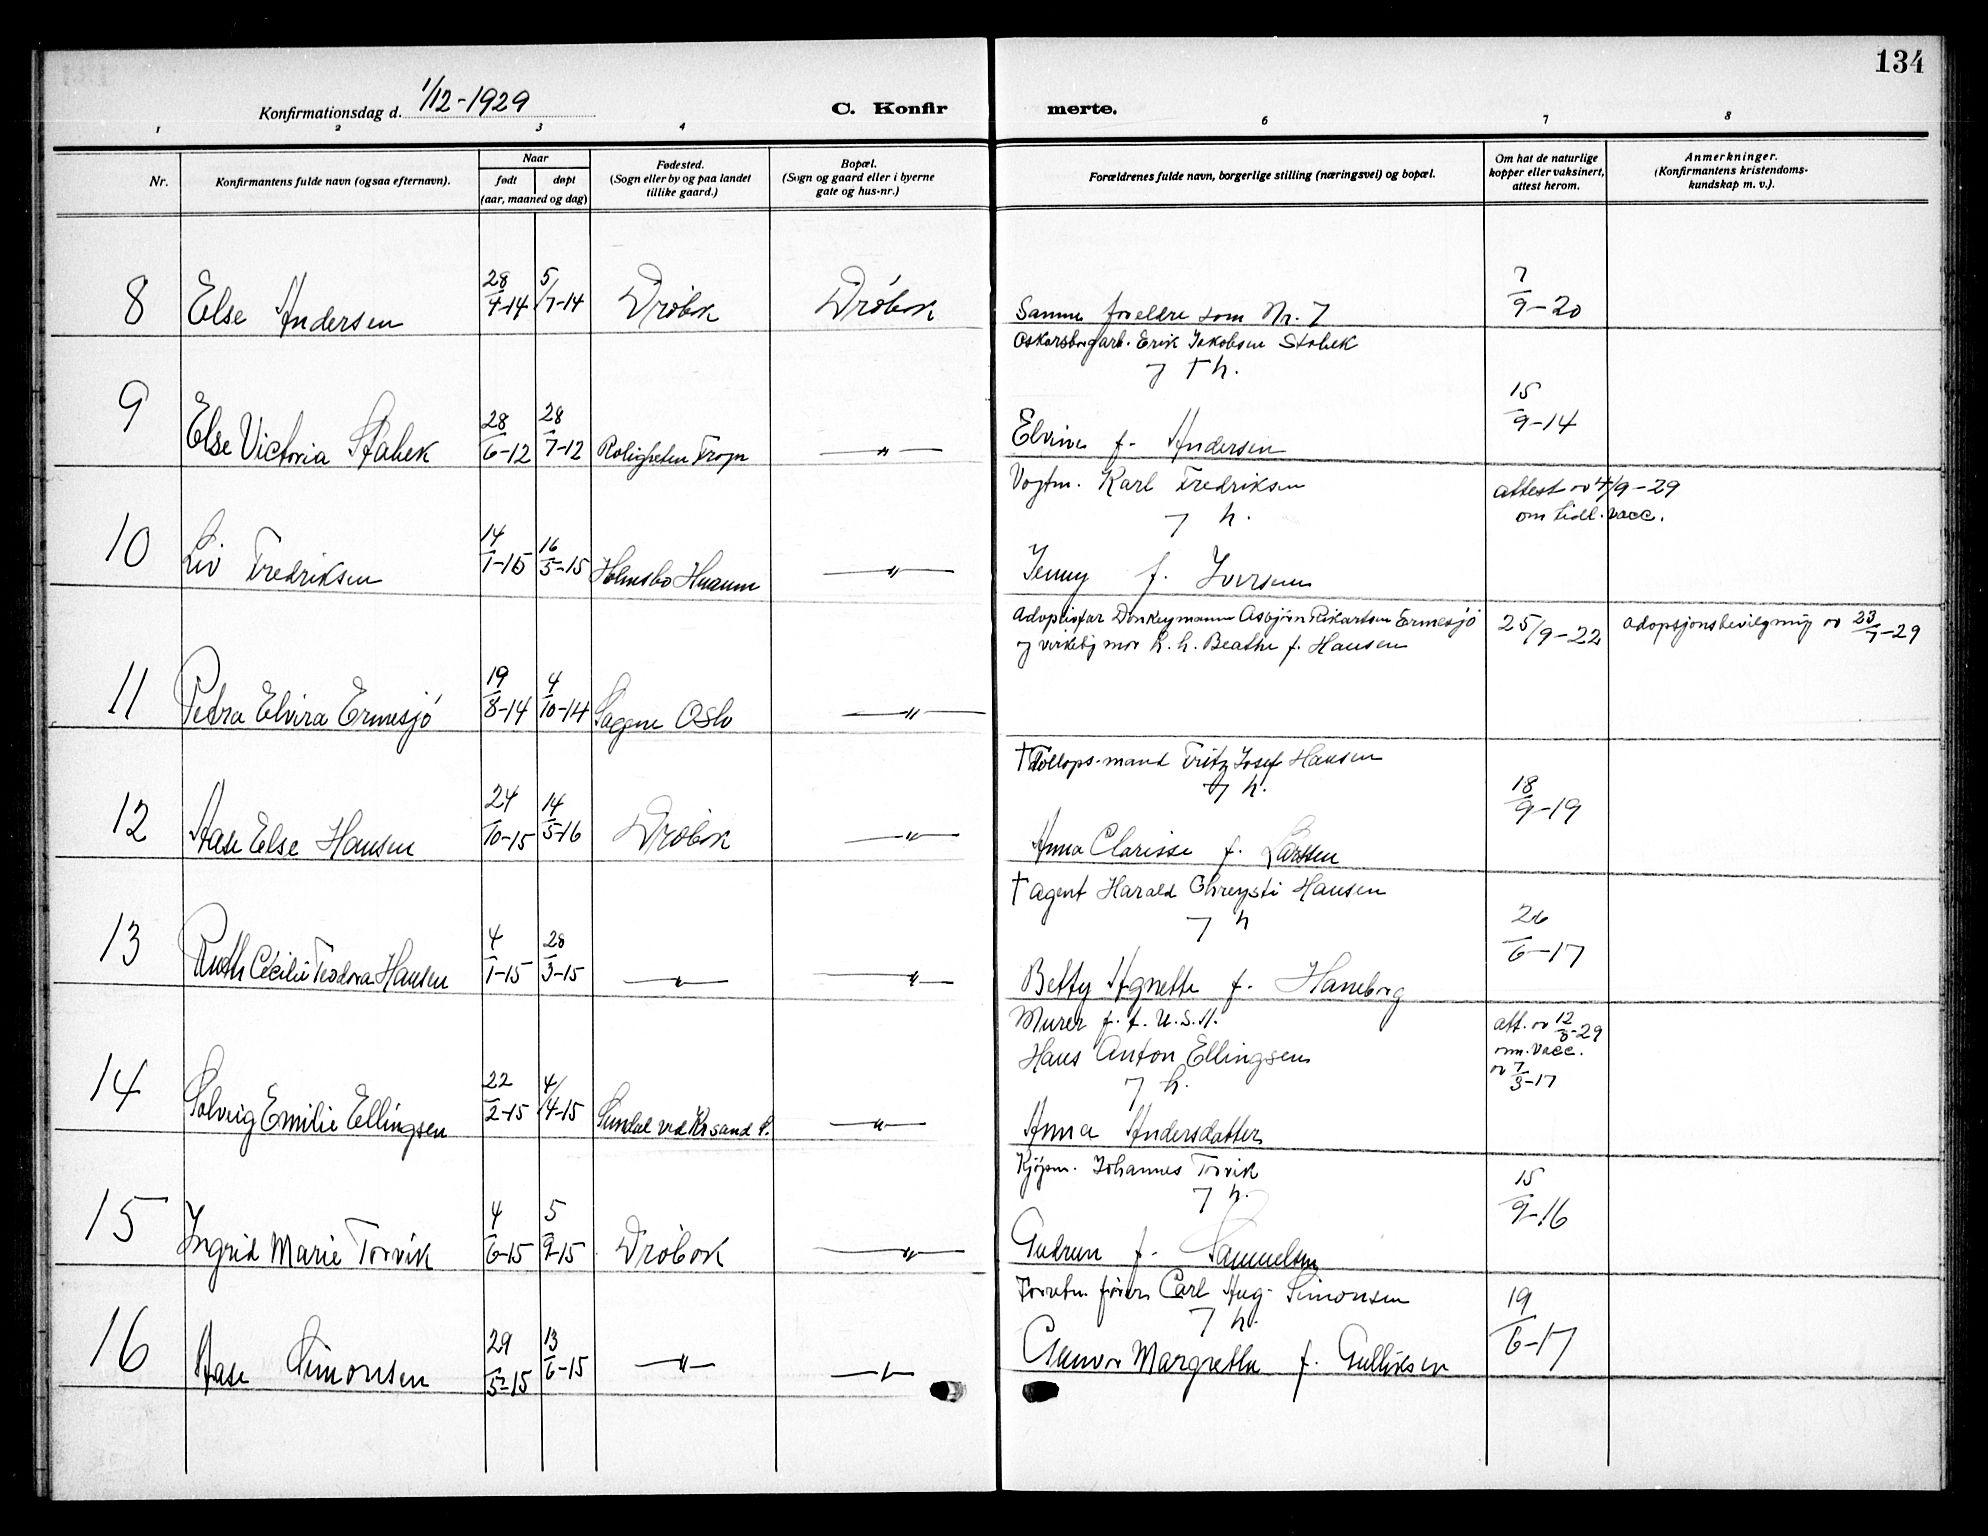 134
Konfirmationsdag d. 1/12-1929
C. Konfir merte.
1 2 3 4 6 7 8
Nr.
Konfirmantens fulde navn (ogsaa efternavn).
Naar
født
døpt
(aar, maaned og dag)
Fødested.
(Sogn eller by og paa landet
tillike gaard.)
Bopæl.
(Sogn og gaard eller i byerne
gate og hus-nr.)
Forældrenes fulde navn, borgerlige stilling (næringsvei) og bopæl.
Om hat de naturlige
kopper eller vaksinert,
attest herom.
Anmerkninger.
(Konfirmantens kristendoms-
kundskap m. v.).
8 Else Andersen 28/4-14 5/7-14 Drøbak Drøbak
Samme foreldre som Nr. 7
7/9-20
9 Else Victoria Stabek 28/6-12 28/7-12 Roligheten Frogn —"—
Oskarsborgarb. Erik Jakobsen Stabek
† h.
Elvine f. Andersen
15/9-14
10 Liv Fredriksen 14/1-15 16/5-15 Holmsbo Hurum —"—
Vogtm. Karl Fredriksen
h.
Jenny f. Iversen
attest av 4/9-29
om tidl. vacc.
11 Petra Elvira Ermesjö 19/8-14 4/10-14 Sagene Oslo —"—
Adoptivfar Donkeymann Asbjörn Rikartsen Ermesjö
og virkelig mor h. h. Beathe f. Hansen
25/9-22
Adopsjonsbevilgning av 23/7-29
12 Aase Else Hansen 24/10-15 14/5-16 Drøbak —"—
† Tollops-mand Fritz Josef Hansen
h.
Anna Clarisse f. Larssen
18/9-19
13 Ruth Cecilie Teodora Hansen 4/1-15 28/3-15 —"— —"—
† agent Harald Chreysti Hansen
h
Betty Agnette f. Haneborg
26/6-17
14 Solveig Emilie Ellingsen 22/2-15 4/4-15 Sundal ved Kr.sand S. —"—
Murer f. t. U.S.A.
Hans Anton Ellingsen
h.
Anna Andersdatter
att. av 12/8-29
om. vacc.
av 7/3-17
15 Ingrid Marie Torvik 4/6-15 5/9-15 Drøbak —"—
Kjøpm. Johannes Torvik
h.
Gudrun f. Samuelsen
15/9-16
16 Aase Simonsen 29/5-15 13/6-15 —"— —"—
Carl Aug. Simonsen
h.
Gunvor Margrethe f. Gulliksen
19/6-17